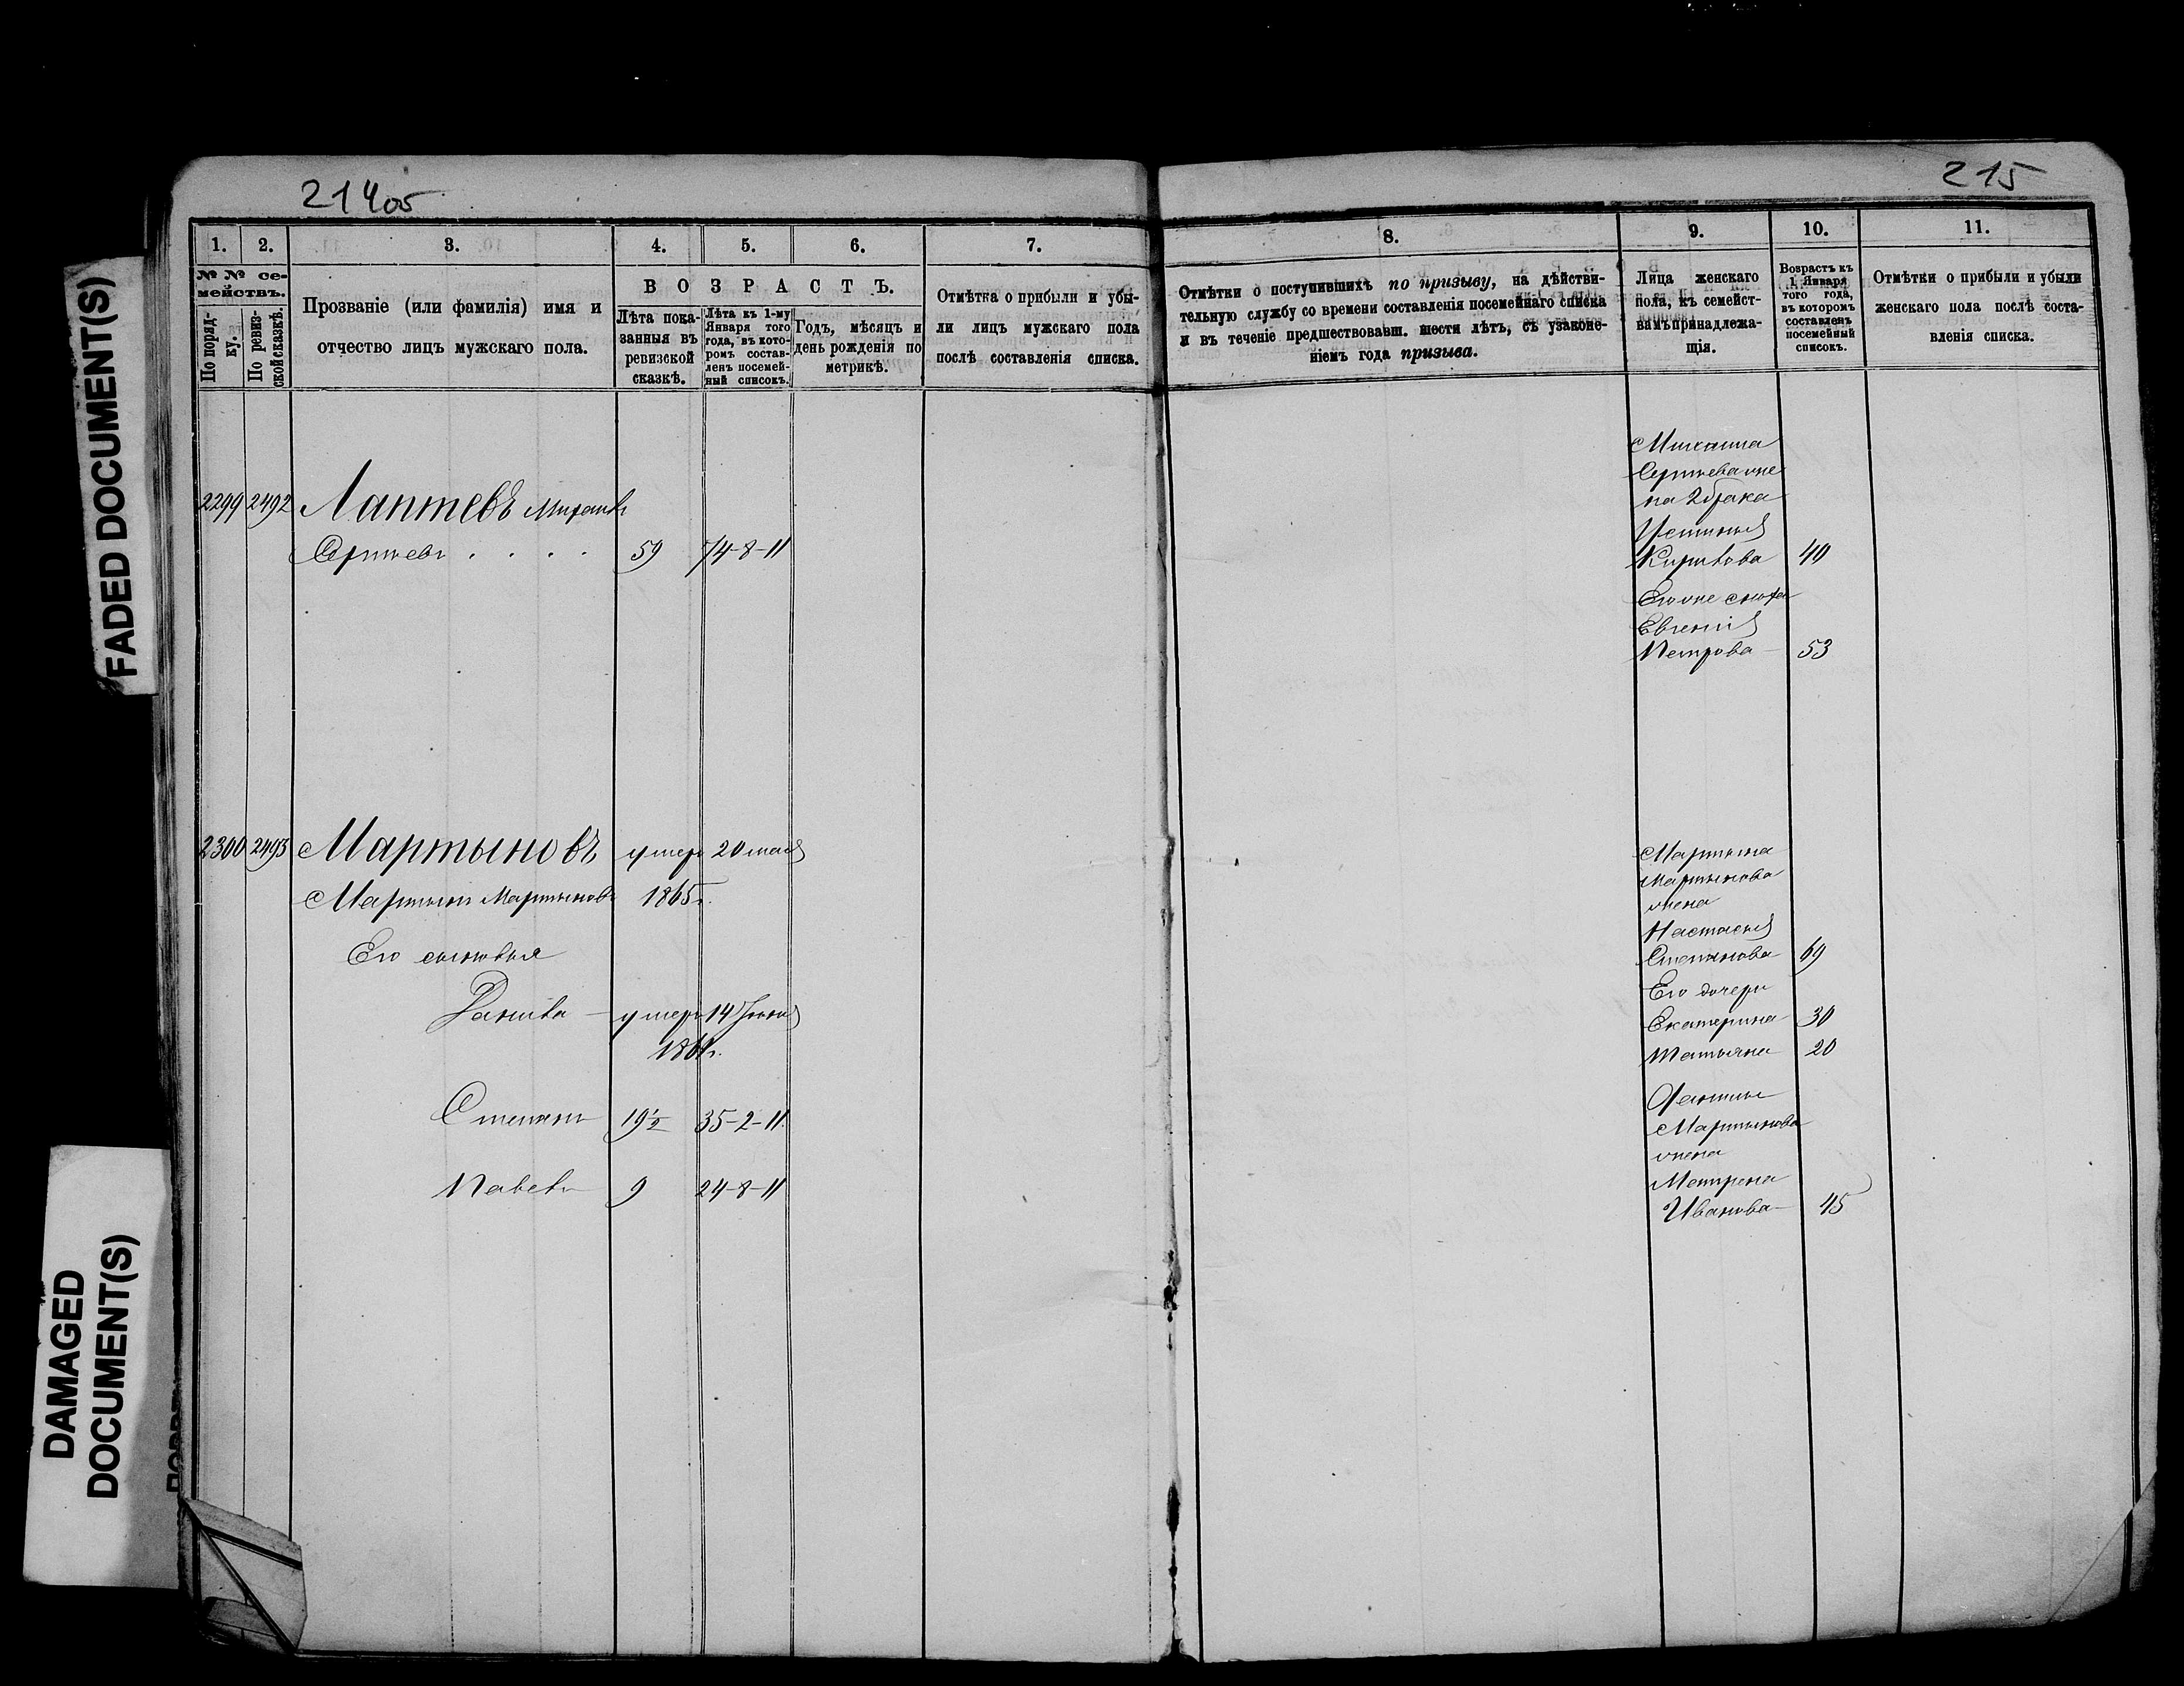 FADED DOCUMENT(S)
DAMAGED
DOCUMENT(S)
214об
1. 2. 3. 4. 5. 6. 7.
№ № се-
мействъ.
По поряд-
ку.
По ревиз-
ской сказкѣ.
Прозваніе (или фамилія) имя и
отчество лицъ мужскаго пола.
ВОЗРАСТЪ.
Лѣта пока-
занныя въ
ревизской
сказкѣ.
Лѣта къ 1-му
Января того
года, въ кото-
ромъ состав-
ленъ посемей-
ный списокъ.
Годъ, мѣсяцъ и
день рожденія по
метрикѣ.
Отмѣтка о прибыли и убы-
ли лицъ мужскаго пола
послѣ составленія списка.
2299 2492 Лаптевъ Михаилъ
Сергѣевъ . . . . 59 74-8-11
2300 2493 Мартыновъ умеръ 20 мая
Мартынъ Мартыновъ 1865г.
Его сыновья
Данила - умеръ 14 Іюня
Степанъ 19½ 35-2-11
Павелъ 9 24-8-11
215
8. 9. 10. 11.
Отмѣтки о поступившихъ по призыву, на дѣйстви-
тельную службу со времени составленія посемейнаго списка
и въ теченіе предшествовавш. шести лѣтъ, съ узаконе-
ніемъ года призыва.
Лица женскаго
пола, къ семейст-
вамъ принадлежа-
щія.
Возрастъ къ
1 Января
того года,
въ которомъ
составленъ
посемейный
списокъ.
Отмѣтки о прибыли и убыли
женскаго пола послѣ соста-
вленія списка.
Михаила
Сергѣева жена
2 брака
Устинья
Кирилова 40
Его же сноха
Евгенія
Петрова - 53
Мартына
Мартынова
жена
Настасья
Степанова 69
Его дочери
Екатерина 30
Татьяна 20
Мартынова
жена
Матрена
Иванова - 45